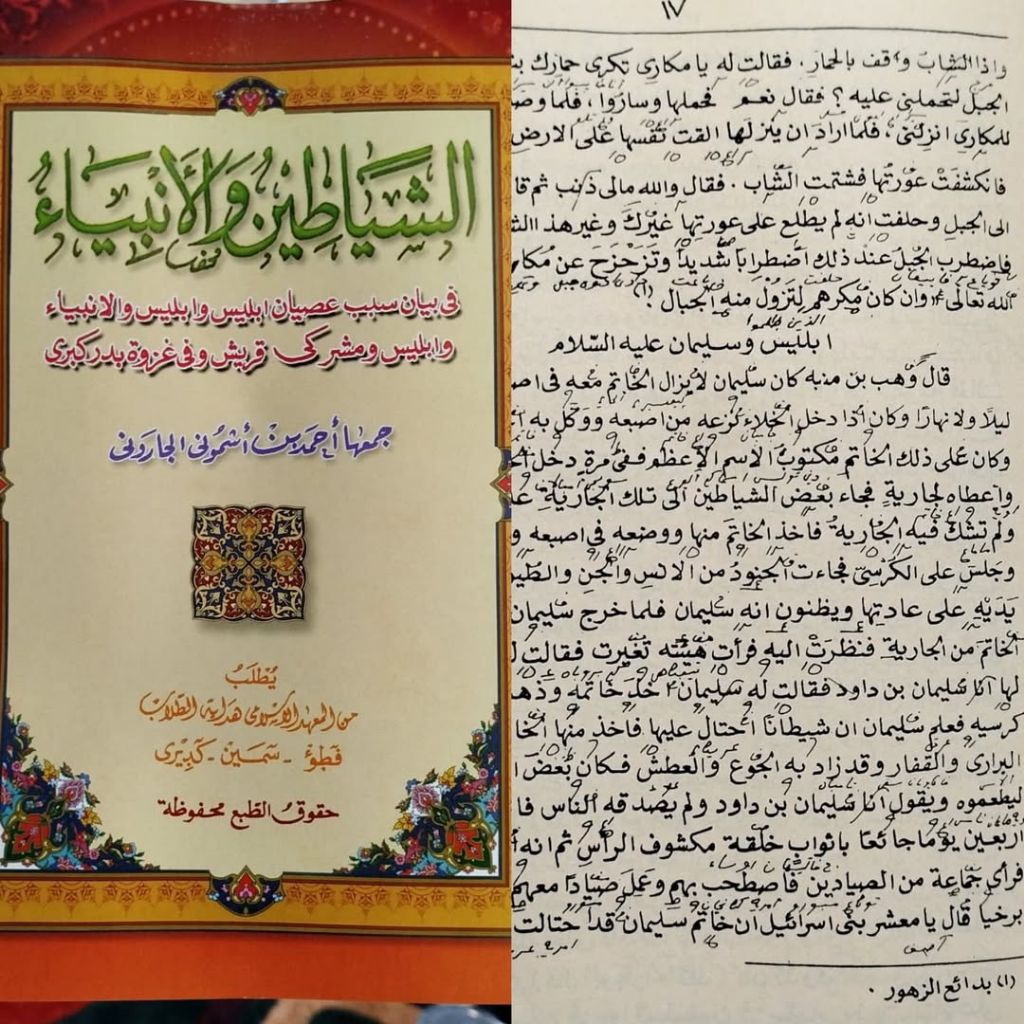 الشَّيَاطِيْنُ وَالْأَنْبِيَاءُ
في بيان سبب عصيان ابليس وابليس والانبياء
وابليس ومشركى قريش وفى غزوة بدر كبرى
جمعها أحمد بن أشمونى الجارونى
يُطْلَبُ
من المعهد الإسلامى هداية الطلاب
فَطُوْءْ - سَمَيْن - كَبِيْرِى
حقوق الطبع محفوظة
١٧
واذا الشاب واقف بالحمار. فقالت له يا مكارى تكرى حمارك
الجبل لتحملنى عليه؟ فقال نعم فحملها وساروا، فلما
للمكارى انزلنى، فلما اراد ان ينزلها القت نفسها على الارض
فانكشفت عورتها فشتمت الشاب. فقال والله مالى ذنب ثم
الى الجبل وحلفت انه لم يطلع على عورتها غيرك وغير هذا
فاضطرب الجبل عند ذلك اضطرابا شديدا وتزحزح عن
الله تعالى وان كان مكرهم لتزول منه الجبال؟ (١)
ابليس وسليمان عليه السلام
قال وهب بن منبه كان سليمان لا يزال الخاتم معه فى
ليلا ولا نهارا وكان اذا دخل الخلاء نزعه من اصبعه ووكل به
وكان على ذلك الخاتم مكتوب الاسم الاعظم ففى مرة دخل
واعطاه لجارية فجاء بعض الشياطين الى تلك الجارية
ولم تشك فيه الجارية فاخذ الخاتم منها ووضعه فى اصبعه
وجلس على الكرسى فجاءت الجنود من الانس والجن والطير
يديه على عادتها ويظنون انه سليمان فلما خرج سليمان
الخاتم من الجارية فنظرت اليه فرأت هيئته تغيرت فقالت
لها انا سليمان بن داود فقالت له سليمان اخذ خاتمه
كرسيه فعلم سليمان ان شيطانا احتال عليها فاخذ منها
البرارى والقفار وقد زاد به الجوع والعطش فكان بعض
ليطعموه ويقول انا سليمان بن داود ولم يصدقه الناس
اربعين يوما جائعا باثواب خلقة مكشوف الرأس ثم انه
فرأى جماعة من الصيادين فاصطحب بهم وعمل صيادا معهم
برخيا قال يا معشر بنى اسرائيل ان خاتم سليمان قد احتالت
(١) بدائع الزهور.